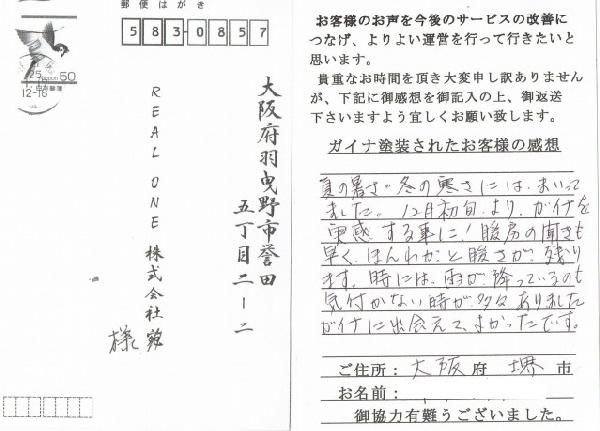 郵便はがき
583-0857
50
25
12-18
大阪府羽曳野市誉田
五丁目二ー二
REAL ONE 株式会社
様
お客様のお声を今後のサービスの改善に
つなげ、よりよい運営を行って行きたいと
思います。
貴重なお時間を頂き大変申し訳ありません
が、下記に御感想を御記入の上、御返送
下さいますよう宜しくお願い致します。
ガイナ塗装されたお客様の感想
夏の暑さ冬の寒さには、まいって
ました。12月初旬より、ガイナを
実感する事に!暖房の聞きも
早く、ほんわかと暖さが残り
ます。時には、雨が降っているのも
気付かない時が多々ありました
ガイナに出会えて、よかったです。
ご住所:大阪府 堺市
お名前:
御協力有難うございました。